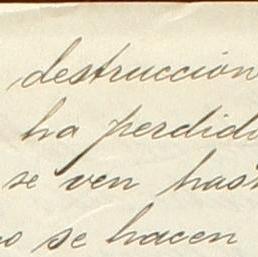 destrucción
ha perdido
se ven has
no se hacen